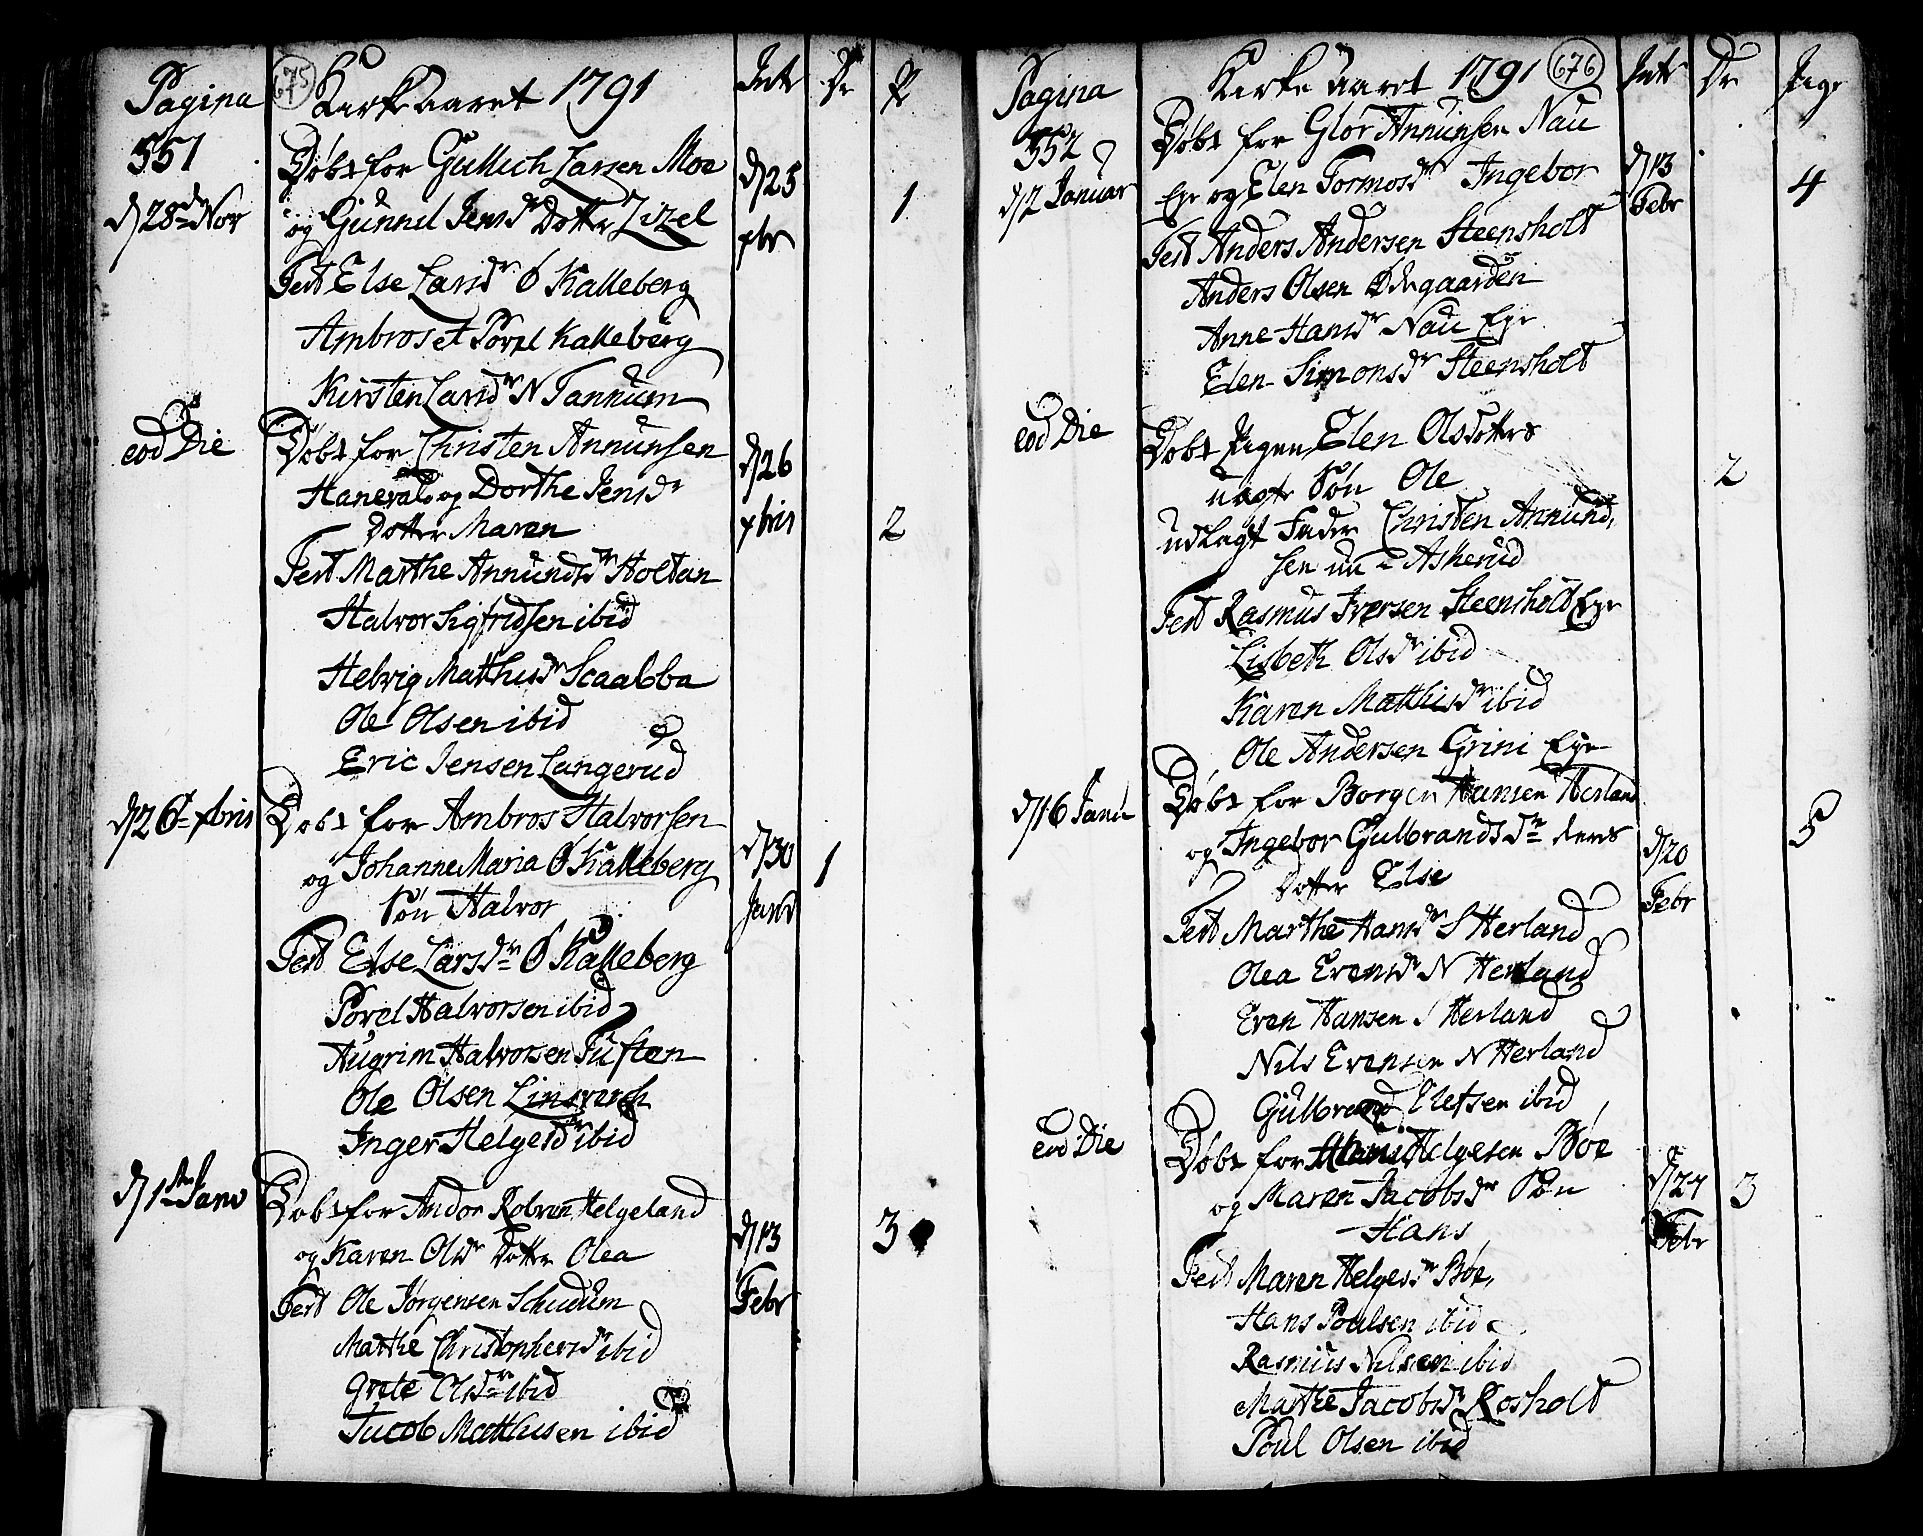 Pagina 551
675 Kirke Aaret 1791 Intr Dr P
Døbt for Gullich Larsen Moe
d 28d Nov og Gunnel Jensdr Dotter Zizel d 25 xbr 1
Test Else Larsdr Ø Kalleberg
Ambros et Povel Kalleberg
Kirsten Larsdr N Tannum
eod Die Døbt for Christen Annunsen d 26 xbris
Haneval og Dorthe Jensdr
Dotter Maren 2
Test Marthe Annundsdr Holtan
Halvor Sigfridsen ibid
Helvig Mathisdr Scaalba
Ole Olsen ibid
Eric Jensen Langerud
d 26t xbris Døbt for Ambros Halvorsen
og Johanne Maria Ø Kalleberg d 30 Janv 1
Søn Halvor
Test Else Larsdr Ø Kalleberg
Povel Halvorsen ibid
Augrim Halvorsen Tuften
Ole Olsen Linsverch
Inger Helgesdr ibid
d 1ste Janv Døbt for Andor Helgeland
og Karen Olsdr Dotter Olea d 13 Febr 3
Test Ole Jørgensen Schudum
Marthe Christophersdr ibid
Grete Olsdr ibid
Jacob Matthisen ibid
Pagina 552
Kirke Aaret 1791 676 Intr Dr Piger
Døbt for Glor Annunsen Nau
d 2 Januar Eje og Elen Tormosdr Ingebor d 13 Febr 4
Test Anders Andersen Steensholt
Anders Olsen Ødegaarden
Anne Hansdr Nau Eje
Elen Simonsdr Steensholt
eod Die Døbt Pigen Elen Olsdotters
uægte Søn Ole 2
udlagt Fader Christen Annund,
sen Askerud
Test Rasmus Iversen Steensholt Eje
Lisbeth Olsdr ibid
Karen Matthisdr ibid
Ole Andersen Grini Eje
d 16 Janu Døbt for Borger Hansen Herland
og Ingebor Gulbrandsdr deres d 20 Febr 5
Dotter Else
Test Marthe Hansdr S Herland
Olea Evensdr N Herland
Even Hansen S Herland
Nils Evensen N Herland
Gulbrand Elefsen ibid
eod Die Døbt for Hans Helgesen Bøe
og Maren Jacobsdr Søn d 27 Febr 3
Hans
Test Maren Helgesdr Bøe,
Hans Poulsen ibid
Rasmus Nilsen ibid
Marthe Jacobsdr Rosholt
Poul Olsen ibid